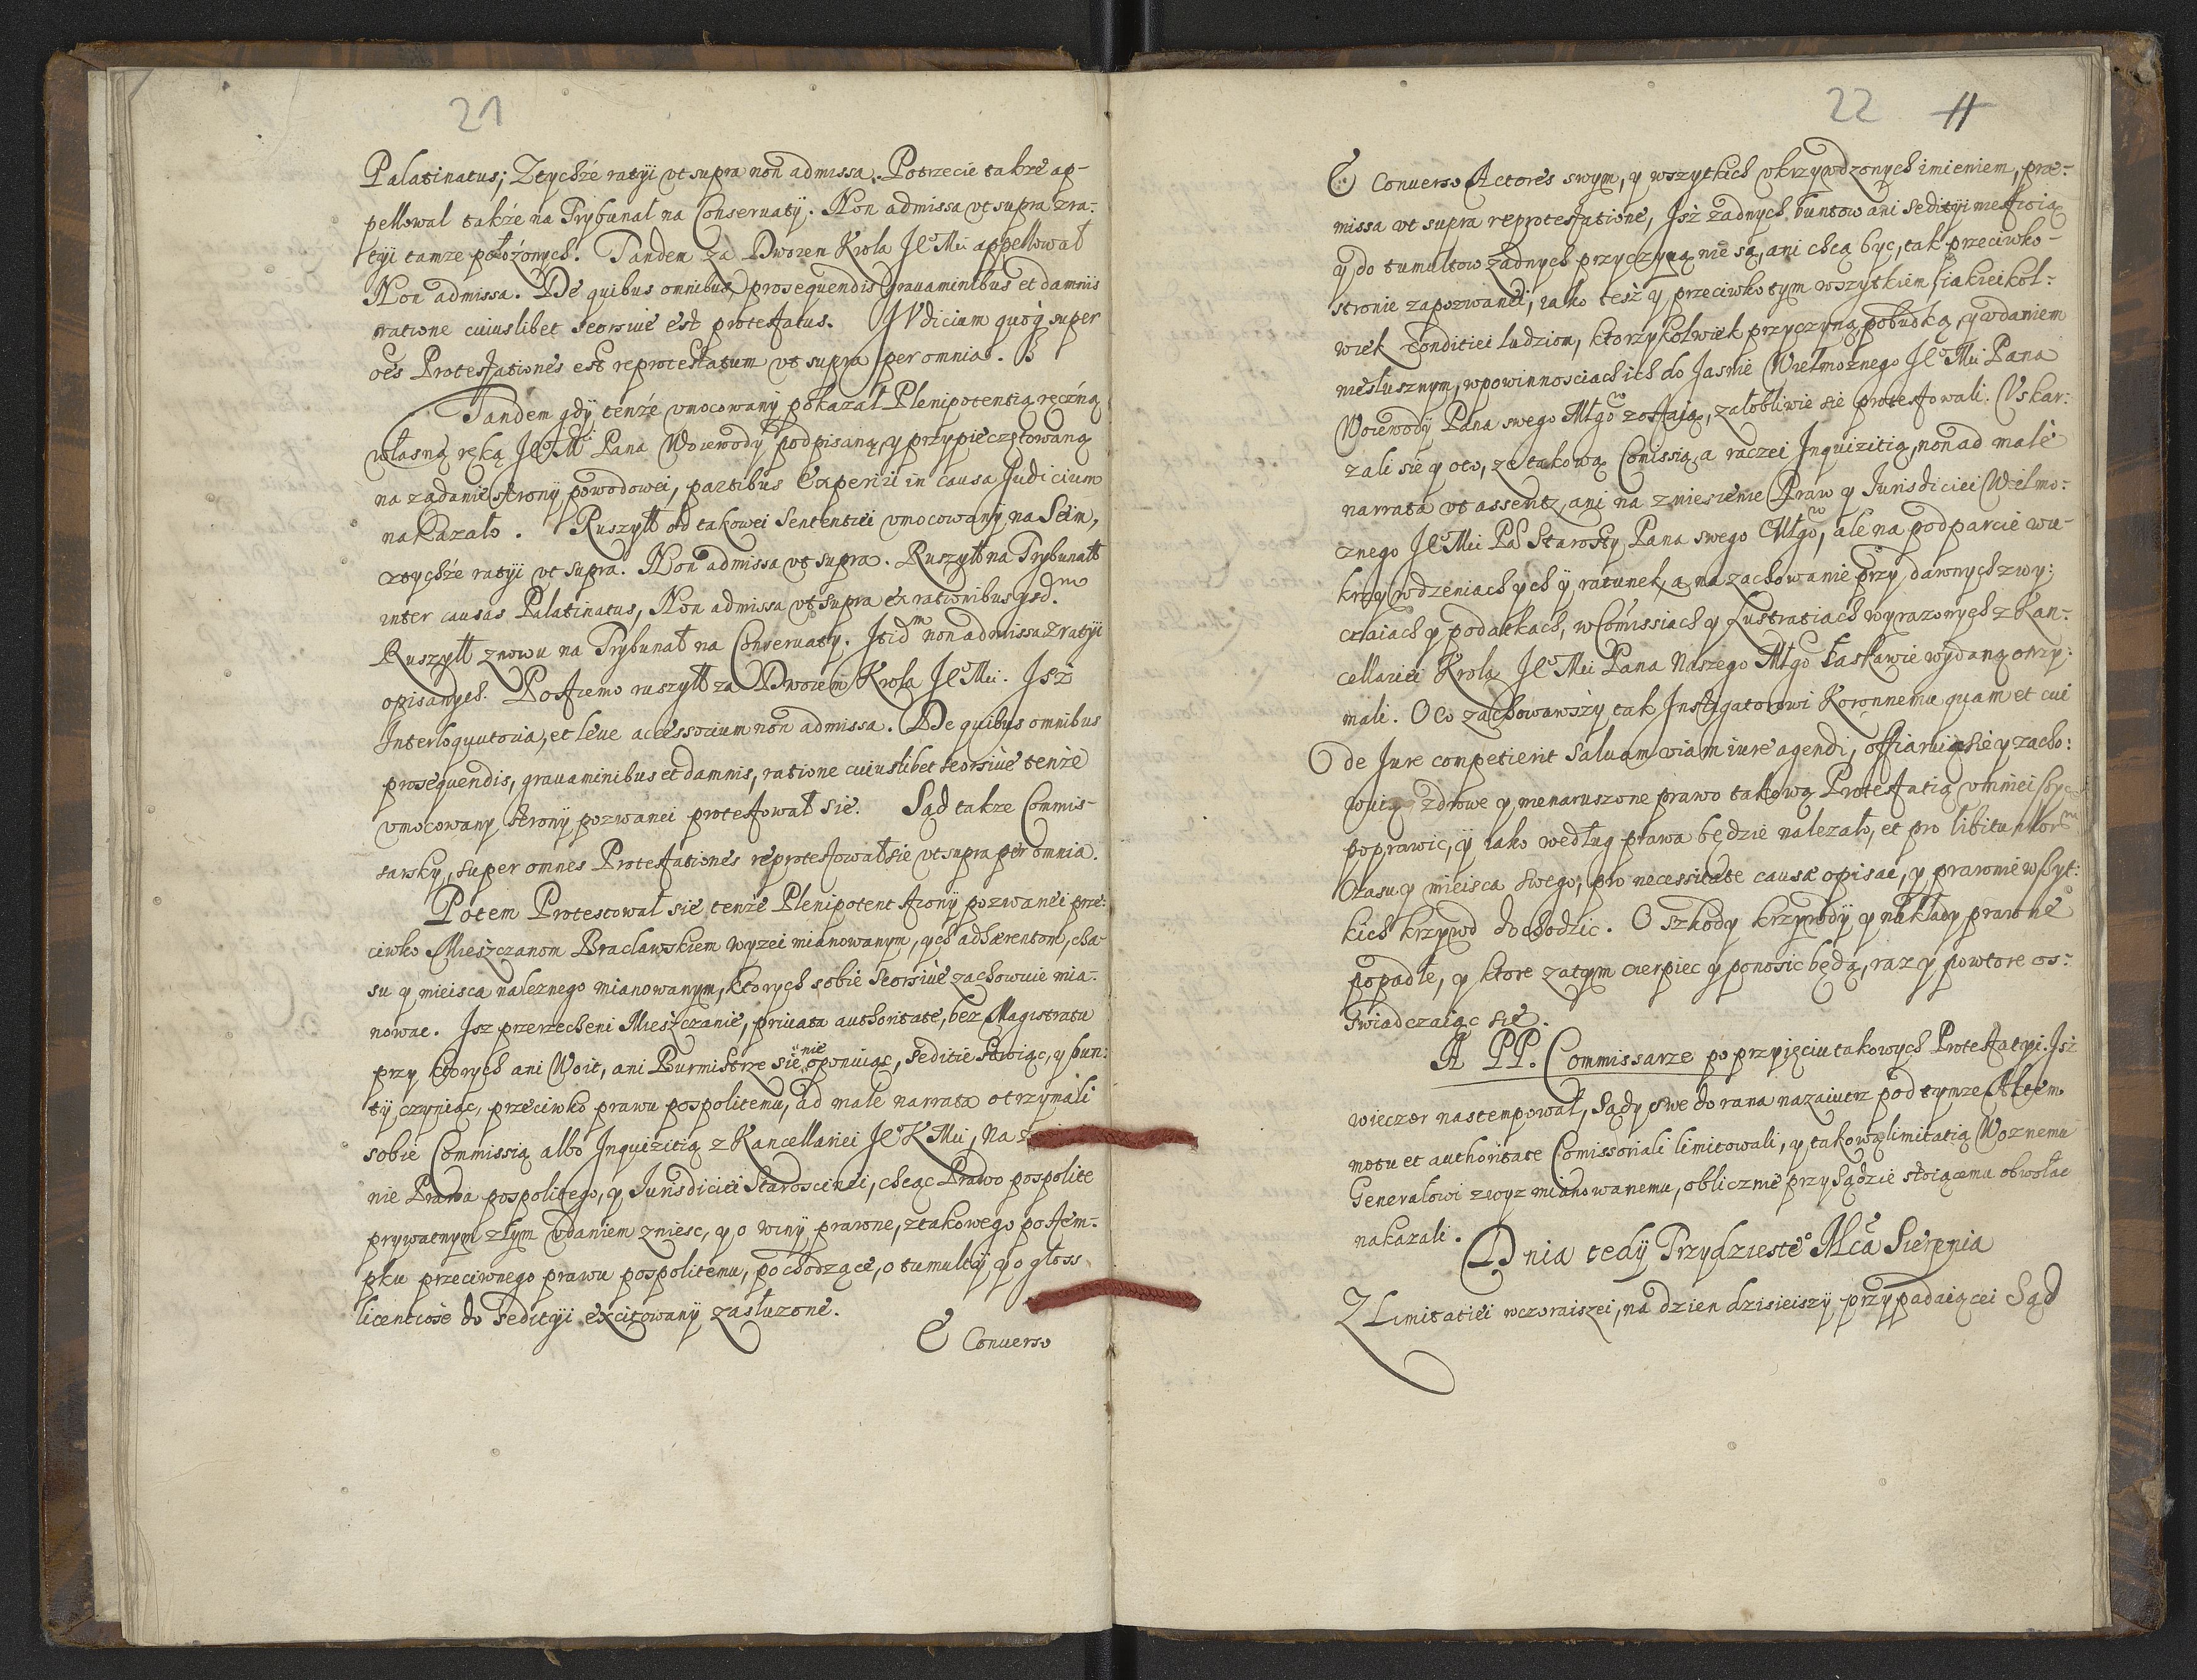 21
Palatinatus; Ztychże ratyi vt supra non admissa. Potrzecie takze ap-
pellowal takźe na Trybunał na Conseruaty. Non admissa vt supra zra-
tyi tamze położonych. Tandem za Dworem Krola Je° Mći appellował
Non admissa. De quibus omnibus prosequendis grauaminibus et damnis
ratione cuiuslibet seorsiue est protestatus. IVdicium quoq super
oes Protestationes est reprotestatum vt supra per omnia.
Tandem gdy tenże vmocowany pokazał Plenipotentią ręczną
własną ręką Je° Mći Pana Woiewody podpisaną, y przypieczętowaną
na zadanie strony powodowei, partibus Experiri in causa Judicium
nakazało. Ruszył od takowei Sententiei vmocowany na Seim,
ztychże ratyi vt supra. Non admissa vt supra. Ruszył na Trybunał
inter causas Palatinatus, Non admissa vt supra ex rationibus ysd.m
Ruszył znowu na Trybunał na Conseruaty. Itidm non admissa z ratyi
opisanych. Postremo ruszył za Dworem Krola Je° Mći. Isz
Interloquutoria, et leue accessorium non admissa. De quibus omnibus
prosequendis, grauaminibus et damnis, ratione cuiuslibet seorsiue tenże
vmocowany strony pozwanei protestował sie. Sąd takze Commis-
sarsky, super omnes Protestationes reprotestował sie vt supra per omnia.
Potem Protestował sie tenże Plenipotent strony pozwanei prze-
ciwko Mieszczanom Braclawskiem wyzei mianowanym, ych adhærentom, cza-
su y mieisca naleznego mianowanym, ktorych sobie seorsiue zachowuie mia-
nowac. Isz przerzecheni Mieszczanie, priuata authoritate, bez Magistratu
przy ktorych ani Woit, ani Burmistrze sie nie oponuiąc, seditie stroiąc, y bun:
ty czyniąc, przeciwko prawu pospolitemu, ad male narrata otrzymali
sobie Commissią albo Inquizitią z Kancellariei Je° K Mći, Na
nie Prawa pospolitego, y Jurisdiciei Staroscinei, chcąc Prawo pospolite
prywatnym złym vdaniem zniesc, y o winy prawne, z takowego postem-
pku przeciwnego prawu pospolitemu, pochodzące, o tumulty y o głoss
licentiose do sedityi excitowany zasłuzone.
E Conuerso
22 11
E Conuerso Actores swym, y wszytkich vkrzywdzonych imieniem, prae-
missa vt supra reprotestatione, Isż zadnych buntow ani sedityi nie stroią
y do tumultow zadnych przyczyną nie są, ani chcą byc, tak przeciwko-
stronie zapozwanei, iako tesż y przeciwko tym wszytkiem iakieikol-
wiek Conditiei ludziom, ktorzykolwiek przyczyną, pobudką, y vdaniem
niesłusznym, wpowinnosciach ich do Jasnie Wielmoznego Je° Mći Pana
Woiewody Pana swego Młgo zostaią, załobliwie sie protestowali. Vskar:
zali sie y oto, ze takową Comissią, a raczei Inquizitią, non ad male
narrata vt asserit, ani na zniesienie Praw y Jurisdiciei Wielmo-
znego Je° Mći Pa Starosty Pana swego Młgo, ale na podparcie w v-
krzywdzeniach ych y ratunek, a na zachowanie przy dawnych zwy:
czaiach y podatkach, w Comissiach y Lustratiach wyrazonych z Kan-
cellariei Krola Je° Mći Pana Naszego Młgo Łaskawie wydaną otrzy:
mali. O co zachowawszy, tak Instigatorowi Koronnemu quam et cui
de Jure conpetierit saluam viam iure agendi, offiaruią sie y zacho:
wuią zdrowe y nienaruszone prawo takową Protestatią vmnieiszyc
poprawic, y iako według prawa będzie nalezało, et pro libitu Actorm
Czasu y mieisca swego, pro necessitate causæ opisac, y prawnie wszyt:
kich krzywd dochodzic. O szkody krzywdy y nakłady prawne
popadłe, y ktore zatym cierpiec y ponosic będą, raz y powtore os-
wiadczaiąc sie.
A PP. Commissarze po przyięciu takowych Protestatyi. Isż
wieczor nastempował, Sądy swe do rana nazaiutrz pod tymze Aktem
motu et authoritate Comissoriali limitowali, y takową limitatią Woznemu
Generalowi zwyz mianowanemu, oblicznie przy Sądzie stoiącemu obwołac
nakazali.
Dnia tedy Trzydzieste° Mca Sierpnia
Z Limitatiei wczoraiszei, na dzien dzisieiszy przypadaiącei Sąd